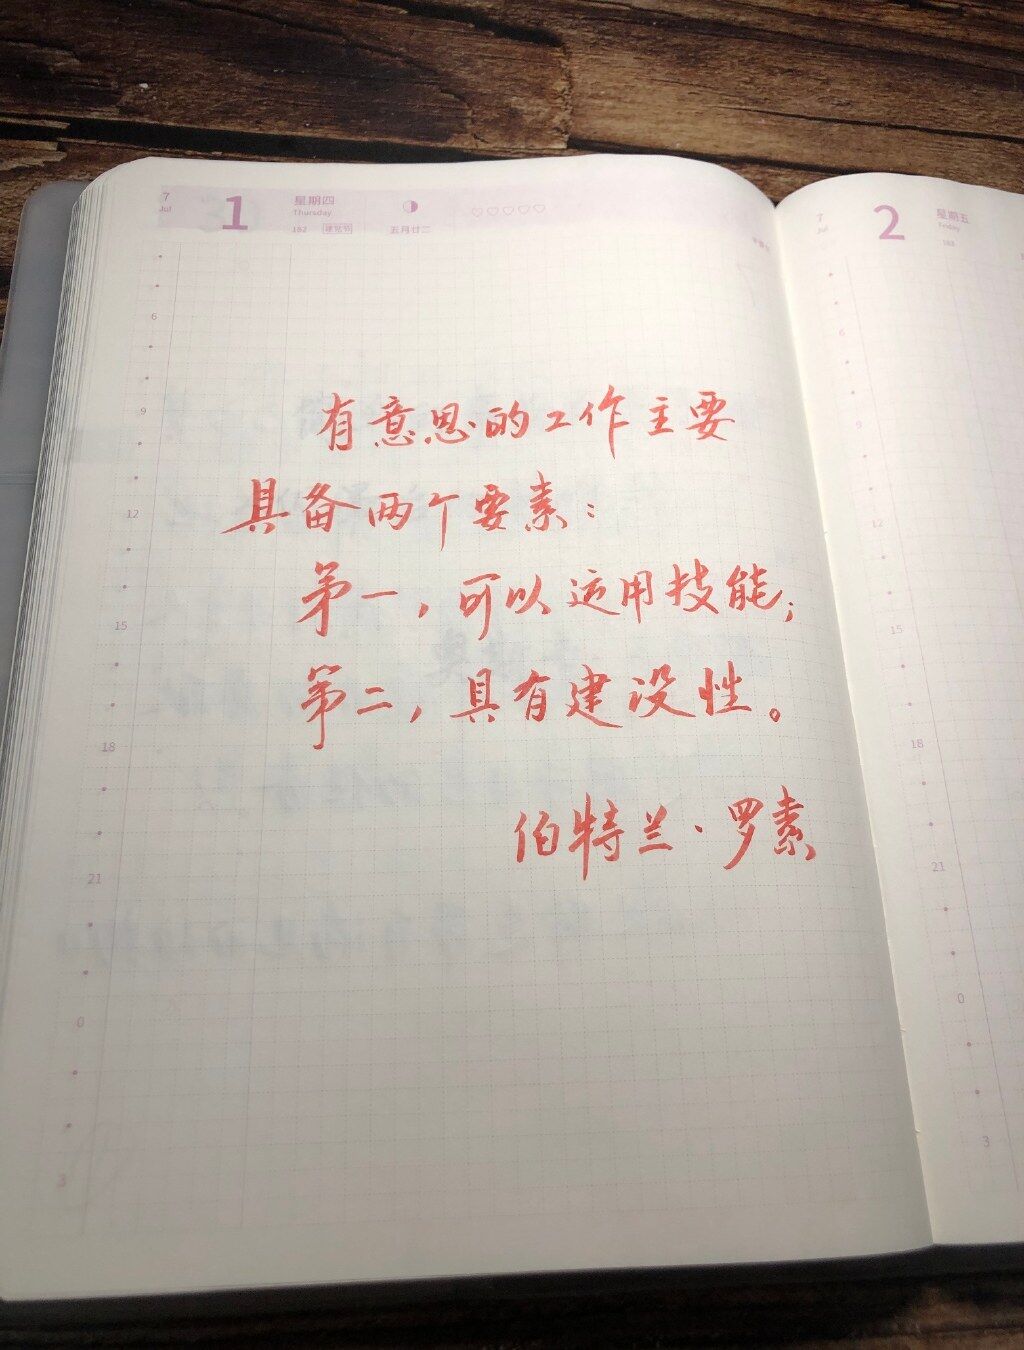 7 Jul 1 星期四 Thursday 182 建党节 五月廿二
7 Jul 2 星期五 Friday 183
有意思的工作主要
具备两个要素：
第一，可以运用技能；
第二，具有建设性。
伯特兰·罗素
6
9
12
15
18
21
0
3
6
9
12
15
18
21
0
3